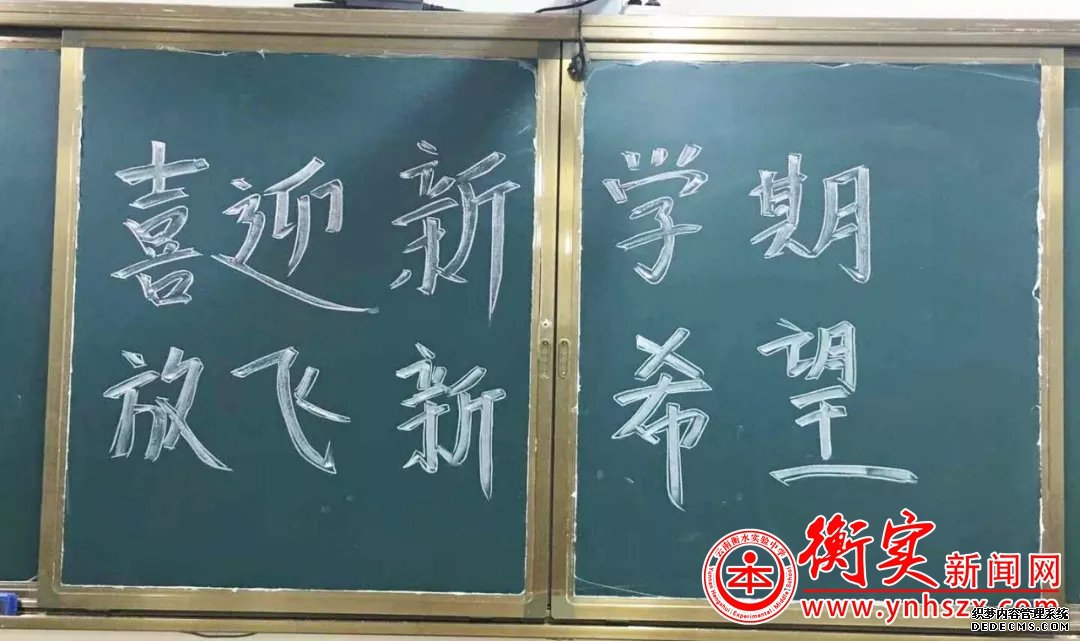 喜迎新学期
放飞新希望
云南衡水实验中学
Yunnan Hengshui Experimental Middle School
衡实新闻网
www.ynhszx.com
织梦内容管理系统
DEDECMS.COM